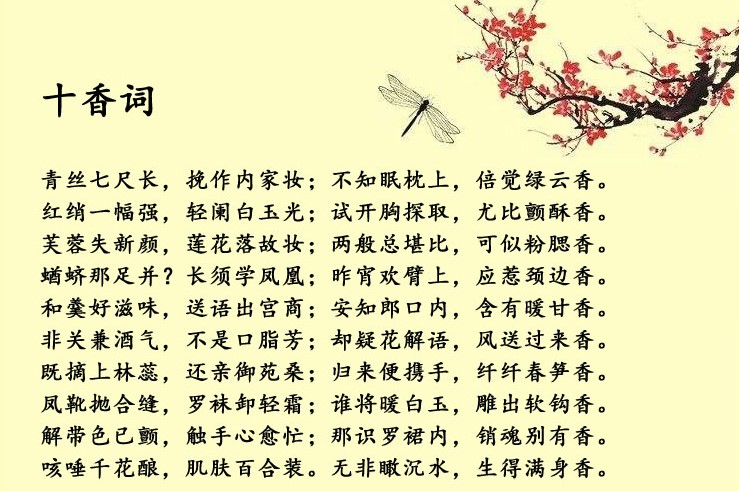 十香词
青丝七尺长，挽作内家妆；不知眠枕上，倍觉绿云香。
红绡一幅强，轻阑白玉光；试开胸探取，尤比颤酥香。
芙蓉失新颜，莲花落故妆；两般总堪比，可似粉腮香。
蝤蛴那足并？长须学凤凰；昨宵欢臂上，应惹颈边香。
和羹好滋味，送语出宫商；安知郎口内，含有暖甘香。
非关兼酒气，不是口脂芳；却疑花解语，风送过来香。
既摘上林蕊，还亲御苑桑；归来便携手，纤纤春笋香。
凤靴抛合缝，罗袜卸轻霜；谁将暖白玉，雕出软钩香。
解带色已颤，触手心愈忙；那识罗裙内，销魂别有香。
咳唾千花酿，肌肤百合装。无非瞰沉水，生得满身香。